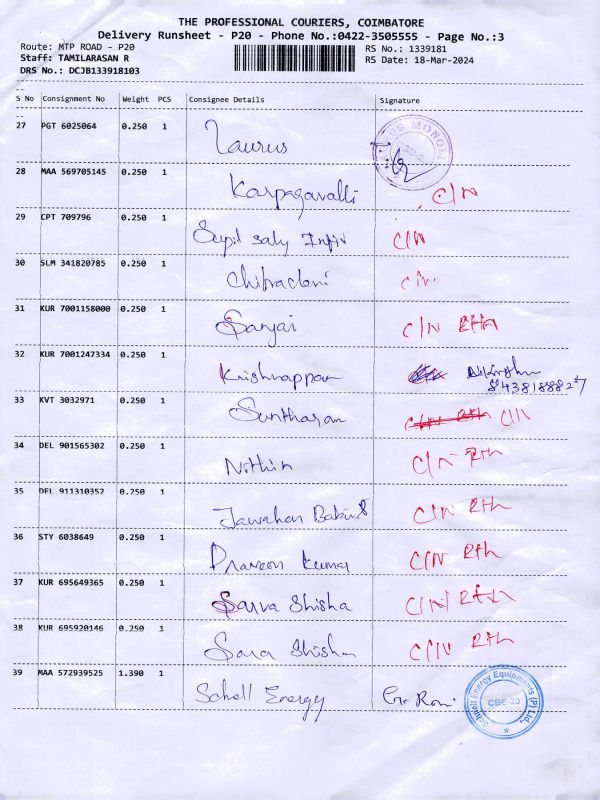 THE PROFESSIONAL COURIERS, COIMBATORE
Delivery Runsheet - P20 - Phone No.:0422-3505555 - Page No.:3
Route: MTP ROAD - P20 RS No.: 1339181
Staff: TAMILARASAN R RS Date: 18-Mar-2024
DRS No.: DCJB133918103
S No Consignment No Weight PCS Consignee Details Signature
27 PGT 6025064 0.250 1 Taurus
28 MAA 569705145 0.250 1 Karpagavalli C/N
29 CPT 709796 0.250 1 C/N
30 SLM 341820785 0.250 1 C/N
31 KUR 7001158000 0.250 1 Sanjai C/N Rth
32 KUR 7001247334 0.250 1 Krishnappan
33 KVT 3032971 0.250 1 Suntharam C/N Rth C/N
34 DEL 901565302 0.250 1 Nithin C/N Rth
35 DEL 911310352 0.250 1 Jawahar Babu C/N Rth
36 STY 6038649 0.250 1 Praveen Kumar C/N Rth
37 KUR 695649365 0.250 1 Sarva Shisha C/N Rth
38 KUR 695920146 0.250 1 C/N Rth
39 MAA 572939525 1.390 1 Schell Energy
Schnell Energy Equipments (P) Ltd.,
CBE-20